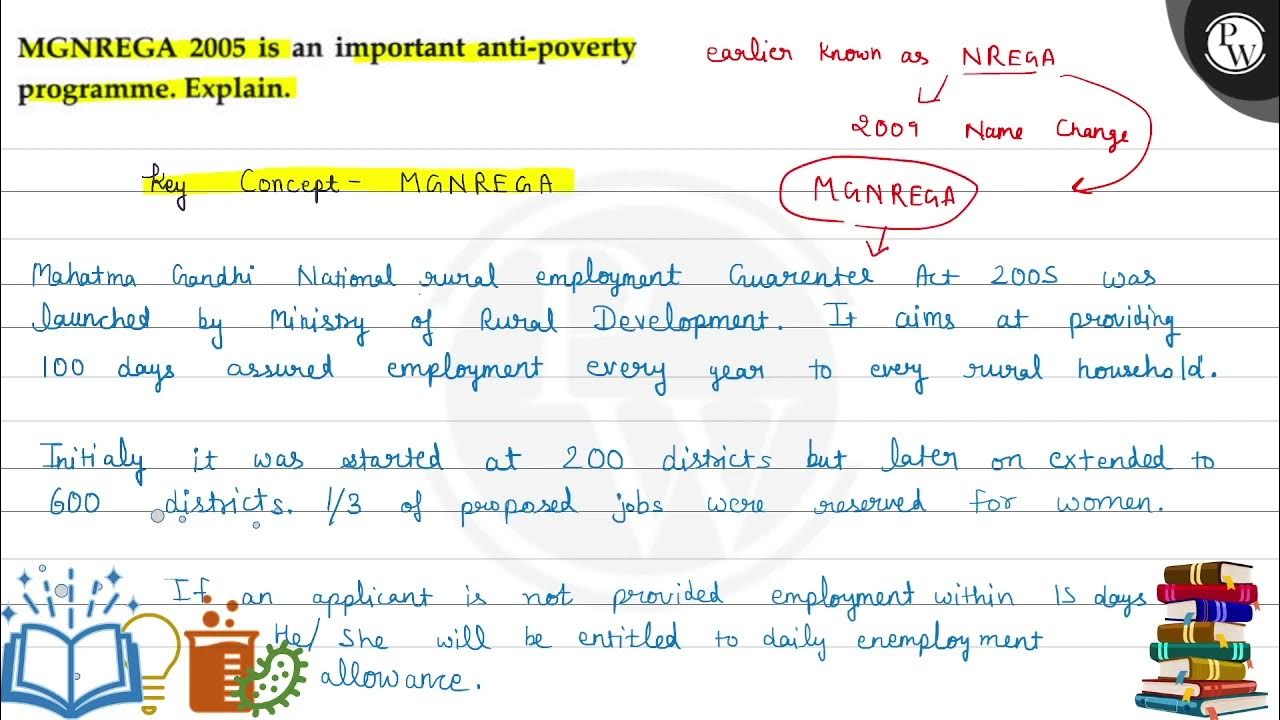 MGNREGA 2005 is an important anti-poverty
programme. Explain.
earlier known as NREGA
2009 Name Change
MGNREGA
Key Concept - MGNREGA
Mahatma Gandhi National rural employment Guarentee Act 2005 was
launched by Ministry of Rural Development. It aims at providing
100 days assured employment every year to every rural household.
Initialy it was started at 200 districts but later on extended to
600 districts. 1/3 of proposed jobs were reserved for women.
If an applicant is not provided employment within 15 days
He/She will be entitled to daily enemployment
allowance.
PW
PW